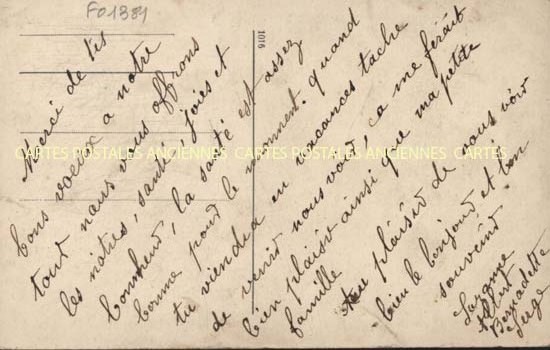 F01384
1016
Merci de tes
bons voeux a notre
tour nous vous offrons
les nôtres, santé, joies et
bonheur, la santé est assez
bonne pour le moment. Quand
tu viendra en vacances tache
de venir nous voir, ca me ferait
bien plaisir ainsi que ma petite
famille
Au plaisir de vous voir
bien le bonjour et bon
souvenir
Suzanne
Albert
Bernadette
Serge
CARTES POSTALES ANCIENNES CARTES POSTALES ANCIENNES CARTES